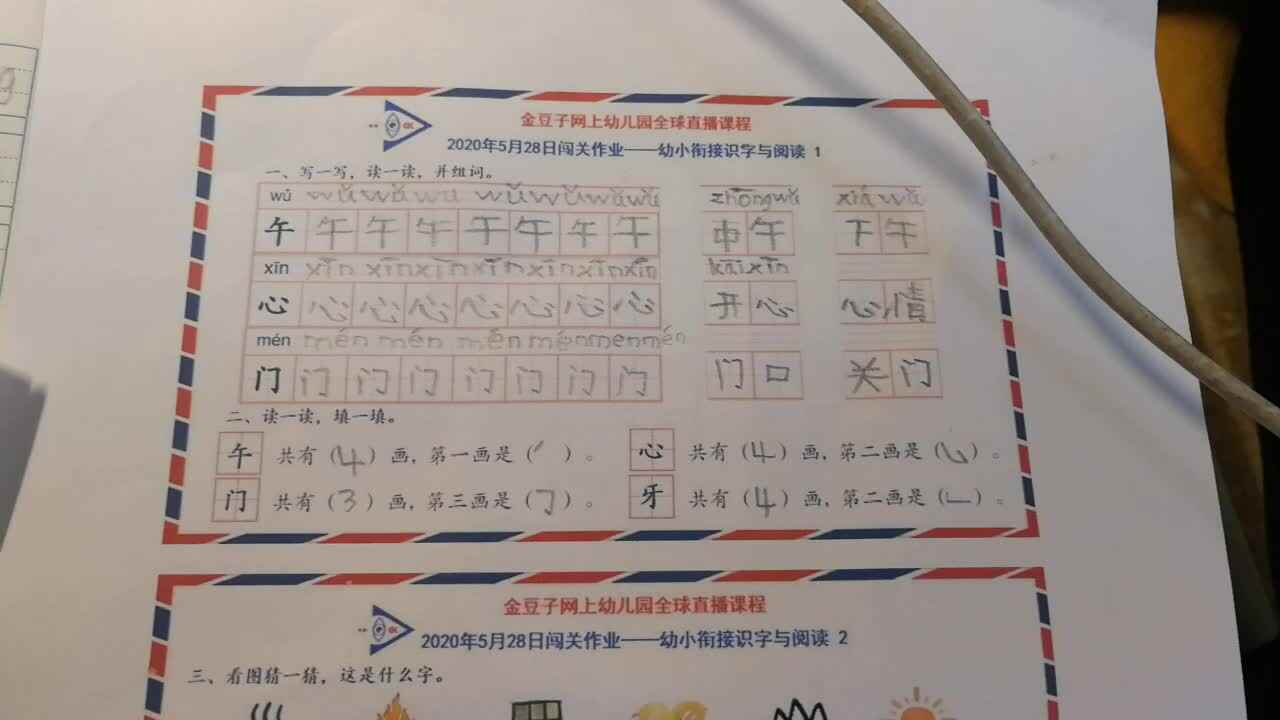 金豆子网上幼儿园全球直播课程
2020年5月28日闯关作业——幼小衔接识字与阅读 1
一、写一写，读一读，并组词。
wǔ wǔ wǔ wu wǔ wǔ wǔ wǔ zhōng wǔ xià wǔ
午 午 午 午 午 午 午 午 中 午 下 午
xīn xīn xīn xīn xīn xīn xīn xīn kāi xīn
心 心 心 心 心 心 心 心 开 心 心 情
mén mén mén mén mén men mén
门 门 门 门 门 门 门 门 门 口 关 门
二、读一读，填一填。
午 共有（4）画，第一画是（丿）。 心 共有（4）画，第二画是（㇃）。
门 共有（3）画，第三画是（㇆）。 牙 共有（4）画，第二画是（𠃊）。
金豆子网上幼儿园全球直播课程
2020年5月28日闯关作业——幼小衔接识字与阅读 2
三、看图猜一猜，这是什么字。